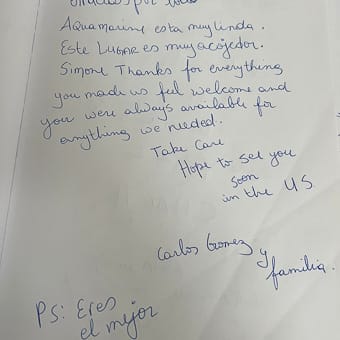 Gracias por todo
Aquamarine esta muy linda.
Este LUGAR es muy acojedor.
Simone Thanks for everything
you made us feel welcome and
you were always available for
anything we needed.
Take Care
Hope to see you
soon
in the U.S.
Carlos Gomez y
familia.
PS: Eres
el mejor